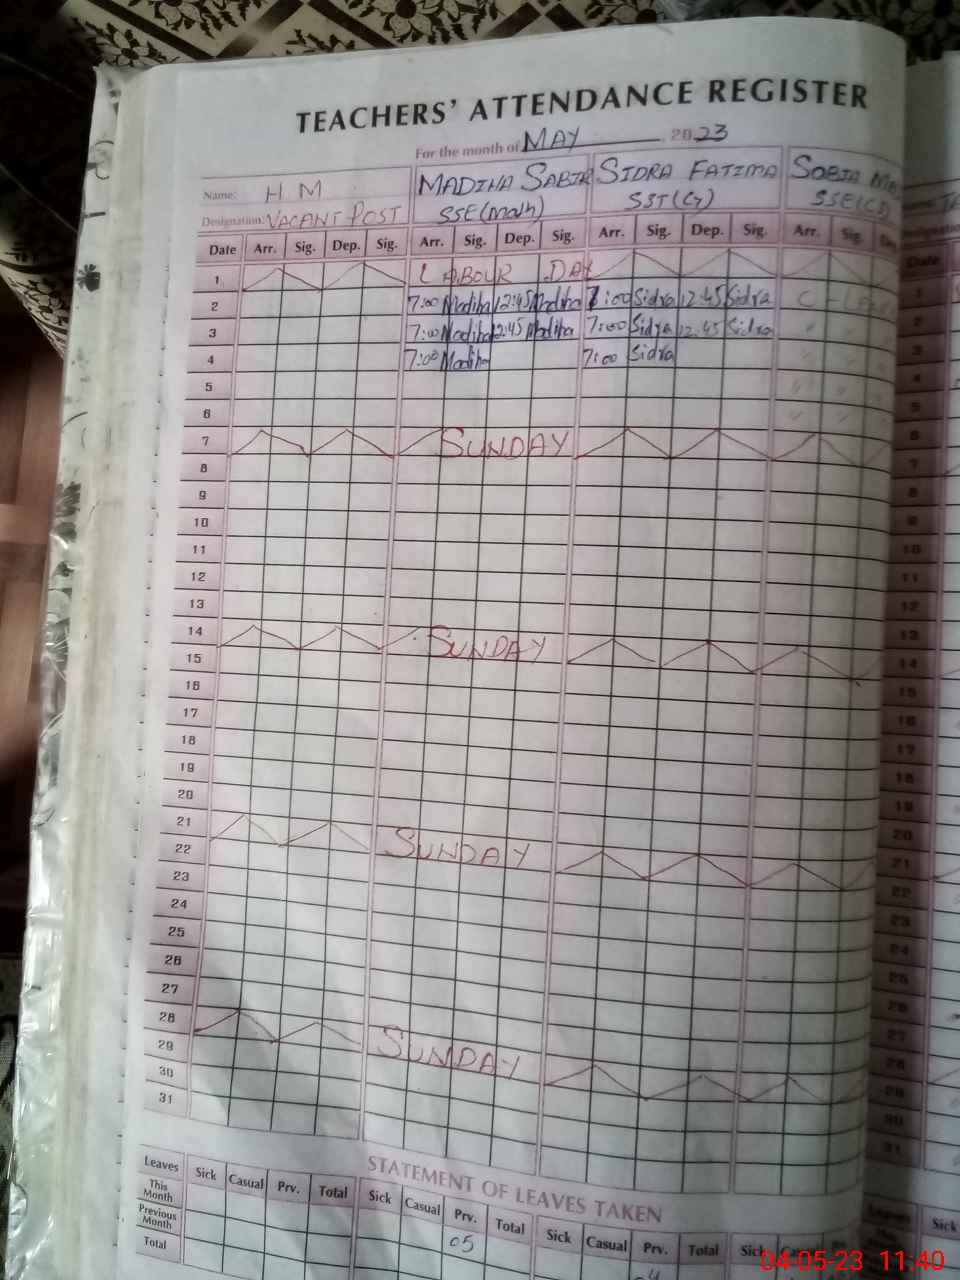 TEACHERS' ATTENDANCE REGISTER
For the month of MAY 2023
Name: H M MADIHA SABIR SIDRA FATIMA SOBIA
Designation: VACANT POST SSE(Math) SST(G) SSE(CS)
Date Arr. Sig. Dep. Sig. Arr. Sig. Dep. Sig. Arr. Sig. Dep. Sig. Arr. Sig. Date
1 LABOUR DAY
2 7:00 Madiha 12:45 Madiha 7:00 Sidra 12:45 Sidra C-Leave
3 7:00 Madiha 12:45 Madiha 7:00 Sidra 12:45 Sidra " "
4 7:00 Madiha 7:00 Sidra " "
5 " "
6 " " "
7 SUNDAY
8
9
10
11
12
13
14 SUNDAY
15
16
17
18
19
20
21 SUNDAY
22
23
24
25
26
27
28 SUNDAY
29
30
31
STATEMENT OF LEAVES TAKEN
Leaves Sick Casual Prv. Total Sick Casual Prv. Total Sick Casual Prv. Total Sick
This Month
Previous Month 05
Total
04-05-23 11:40